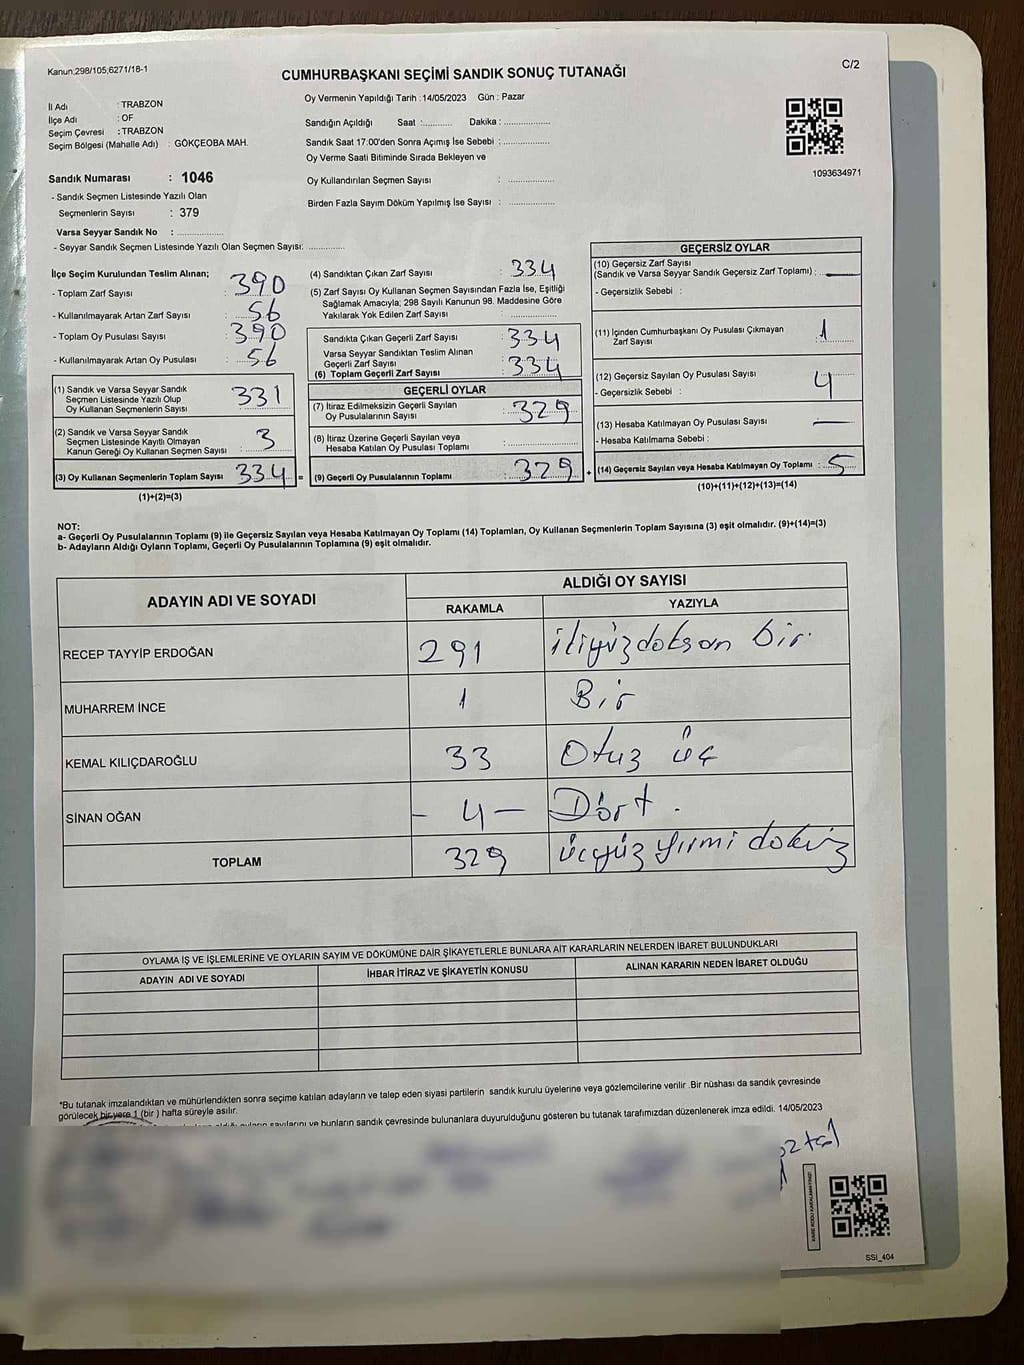 Kanun;298/105;6271/18-1
C/2
CUMHURBAŞKANI SEÇİMİ SANDIK SONUÇ TUTANAĞI
İl Adı : TRABZON
İlçe Adı : OF
Seçim Çevresi : TRABZON
Seçim Bölgesi (Mahalle Adı) : GÖKÇEOBA MAH.
Sandık Numarası : 1046
- Sandık Seçmen Listesinde Yazılı Olan
Seçmenlerin Sayısı : 379
Varsa Seyyar Sandık No : ..................
- Seyyar Sandık Seçmen Listesinde Yazılı Olan Seçmen Sayısı: ..............
Oy Vermenin Yapıldığı Tarih : 14/05/2023 Gün : Pazar
Sandığın Açıldığı Saat :........... Dakika : ..................
Sandık Saat 17:00'den Sonra Açımış İse Sebebi : ..................
Oy Verme Saati Bitiminde Sırada Bekleyen ve
Oy Kullandırılan Seçmen Sayısı : ..................
Birden Fazla Sayım Döküm Yapılmış İse Sayısı : ..................
1093634971
İlçe Seçim Kurulundan Teslim Alınan;
- Toplam Zarf Sayısı : 390
- Kullanılmayarak Artan Zarf Sayısı : 56
- Toplam Oy Pusulası Sayısı : 390
- Kullanılmayarak Artan Oy Pusulası : 56
(1) Sandık ve Varsa Seyyar Sandık
Seçmen Listesinde Yazılı Olup
Oy Kullanan Seçmenlerin Sayısı 331
(2) Sandık ve Varsa Seyyar Sandık
Seçmen Listesinde Kayıtlı Olmayan
Kanun Gereği Oy Kullanan Seçmen Sayısı : 3
(3) Oy Kullanan Seçmenlerin Toplam Sayısı 334 =
(1)+(2)=(3)
(4) Sandıktan Çıkan Zarf Sayısı : 334
(5) Zarf Sayısı Oy Kullanan Seçmen Sayısından Fazla İse, Eşitliği
Sağlamak Amacıyla; 298 Sayılı Kanunun 98. Maddesine Göre
Yakılarak Yok Edilen Zarf Sayısı : ..................
Sandıkta Çıkan Geçerli Zarf Sayısı : 334
Varsa Seyyar Sandıktan Teslim Alınan
Geçerli Zarf Sayısı : 334
(6) Toplam Geçerli Zarf Sayısı :
GEÇERLİ OYLAR
(7) İtiraz Edilmeksizin Geçerli Sayılan
Oy Pusulalarının Sayısı : 329
(8) İtiraz Üzerine Geçerli Sayılan veya
Hesaba Katılan Oy Pusulası Toplamı : ..................
(9) Geçerli Oy Pusulalarının Toplamı : 329 +
GEÇERSİZ OYLAR
(10) Geçersiz Zarf Sayısı
(Sandık ve Varsa Seyyar Sandık Geçersiz Zarf Toplamı) : —
- Geçersizlik Sebebi :
(11) İçinden Cumhurbaşkanı Oy Pusulası Çıkmayan
Zarf Sayısı : 1
(12) Geçersiz Sayılan Oy Pusulası Sayısı : 4
- Geçersizlik Sebebi :
(13) Hesaba Katılmayan Oy Pusulası Sayısı : —
- Hesaba Katılmama Sebebi :
(14) Geçersiz Sayılan veya Hesaba Katılmayan Oy Toplamı : 5
(10)+(11)+(12)+(13)=(14)
NOT:
a- Geçerli Oy Pusulalarının Toplamı (9) ile Geçersiz Sayılan veya Hesaba Katılmayan Oy Toplamı (14) Toplamları, Oy Kullanan Seçmenlerin Toplam Sayısına (3) eşit olmalıdır. (9)+(14)=(3)
b- Adayların Aldığı Oyların Toplamı, Geçerli Oy Pusulalarının Toplamına (9) eşit olmalıdır.
ADAYIN ADI VE SOYADI ALDIĞI OY SAYISI
RAKAMLA YAZIYLA
RECEP TAYYİP ERDOĞAN 291 ikiyüzdoksan bir
MUHARREM İNCE 1 Bir
KEMAL KILIÇDAROĞLU 33 Otuz üç
SİNAN OĞAN - 4 - Dört.
TOPLAM 329 üçyüz yirmi dokuz
OYLAMA İŞ VE İŞLEMLERİNE VE OYLARIN SAYIM VE DÖKÜMÜNE DAİR ŞİKAYETLERLE BUNLARA AİT KARARLARIN NELERDEN İBARET BULUNDUKLARI
ADAYIN ADI VE SOYADI İHBAR İTİRAZ VE ŞİKAYETİN KONUSU ALINAN KARARIN NEDEN İBARET OLDUĞU
*Bu tutanak imzalandıktan ve mühürlendikten sonra seçime katılan adayların ve talep eden siyasi partilerin sandık kurulu üyelerine veya gözlemcilerine verilir .Bir nüshası da sandık çevresinde
görülecek bir yere 1 (bir ) hafta süreyle asılır.
sayılarını ve bunların sandık çevresinde bulunanlara duyurulduğunu gösteren bu tutanak tarafımızdan düzenlenerek imza edildi. 14/05/2023
SSI_404